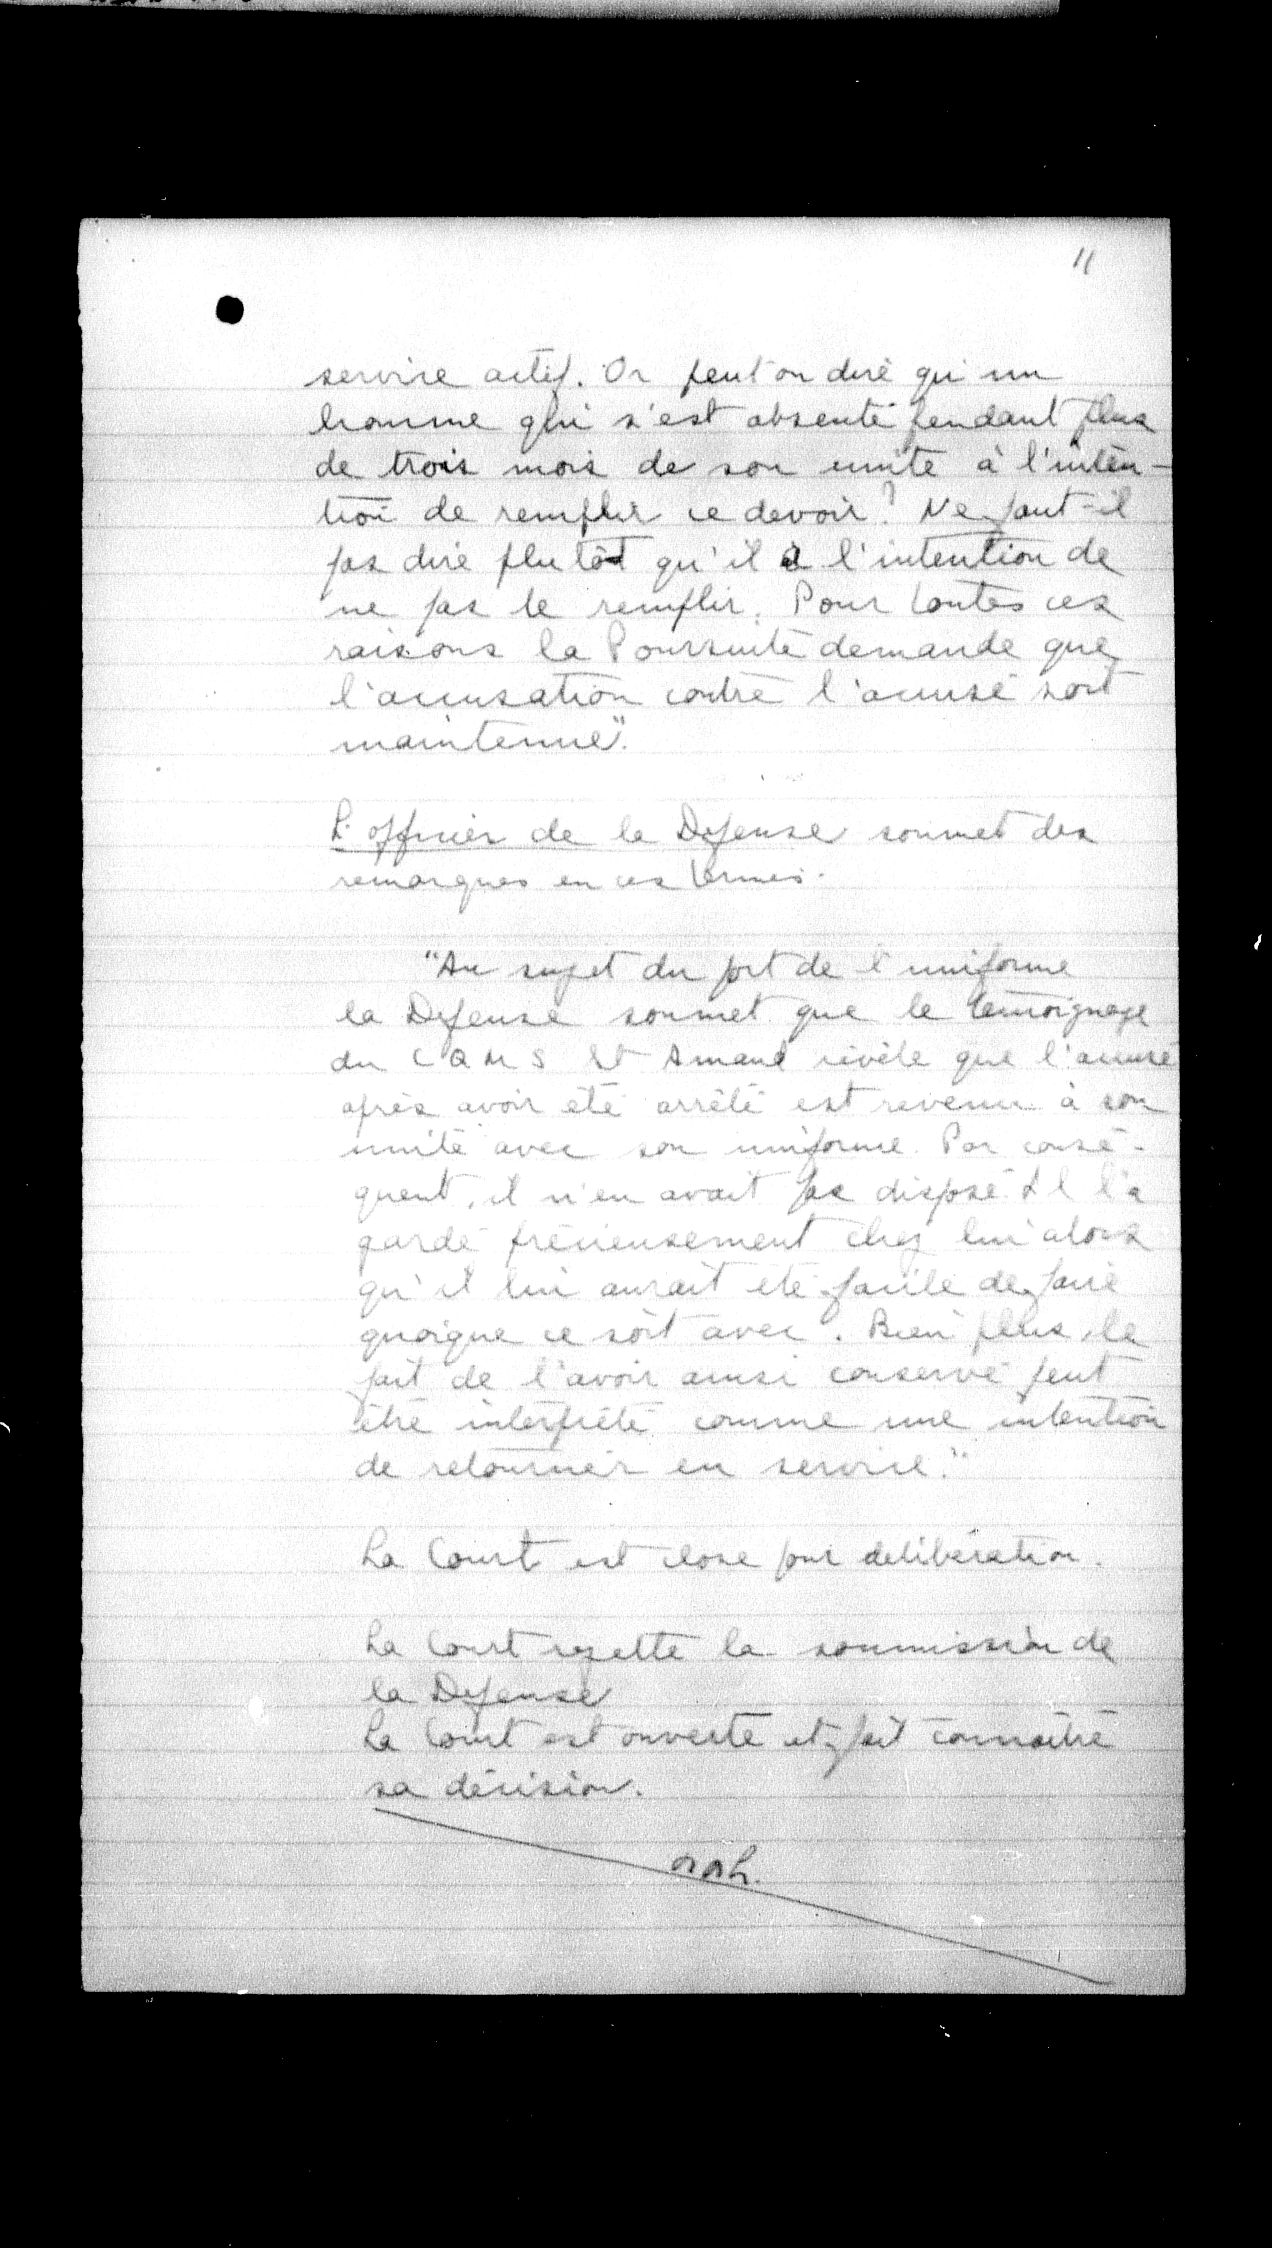 11
service actif. Or peut on dire qu'un
homme qui s'est absenté pendant plus
de trois mois de son unité à l'inten-
tion de remplir ce devoir? Ne faut-il
pas dire plutôt qu'il a l'intention de
ne pas le remplir. Pour toutes ces
raisons la Poursuite demande que
l'accusation contre l'accusé soit
maintenue".
L'officier de la Defense soumet des
remarques en ces termes.
"Au sujet du port de l'uniforme
la Defense soumet que le temoignage
du C Q M S St Amand révèle que l'accusé
après avoir été arrêté est revenu à son
unité avec son uniforme. Par consé-
quent, il n'en avait pas disposé. Il l'a
gardé précieusement chez lui alors
qu'il lui aurait été facile de faire
quoique ce soit avec. Bien plus, le
fait de l'avoir ainsi conservé peut
être interprété comme une intention
de retourner en service."
La Court est close pour deliberation.
La Court rejette la soumission de
la Defense
La Court est ouverte et fait connaître
sa décision.